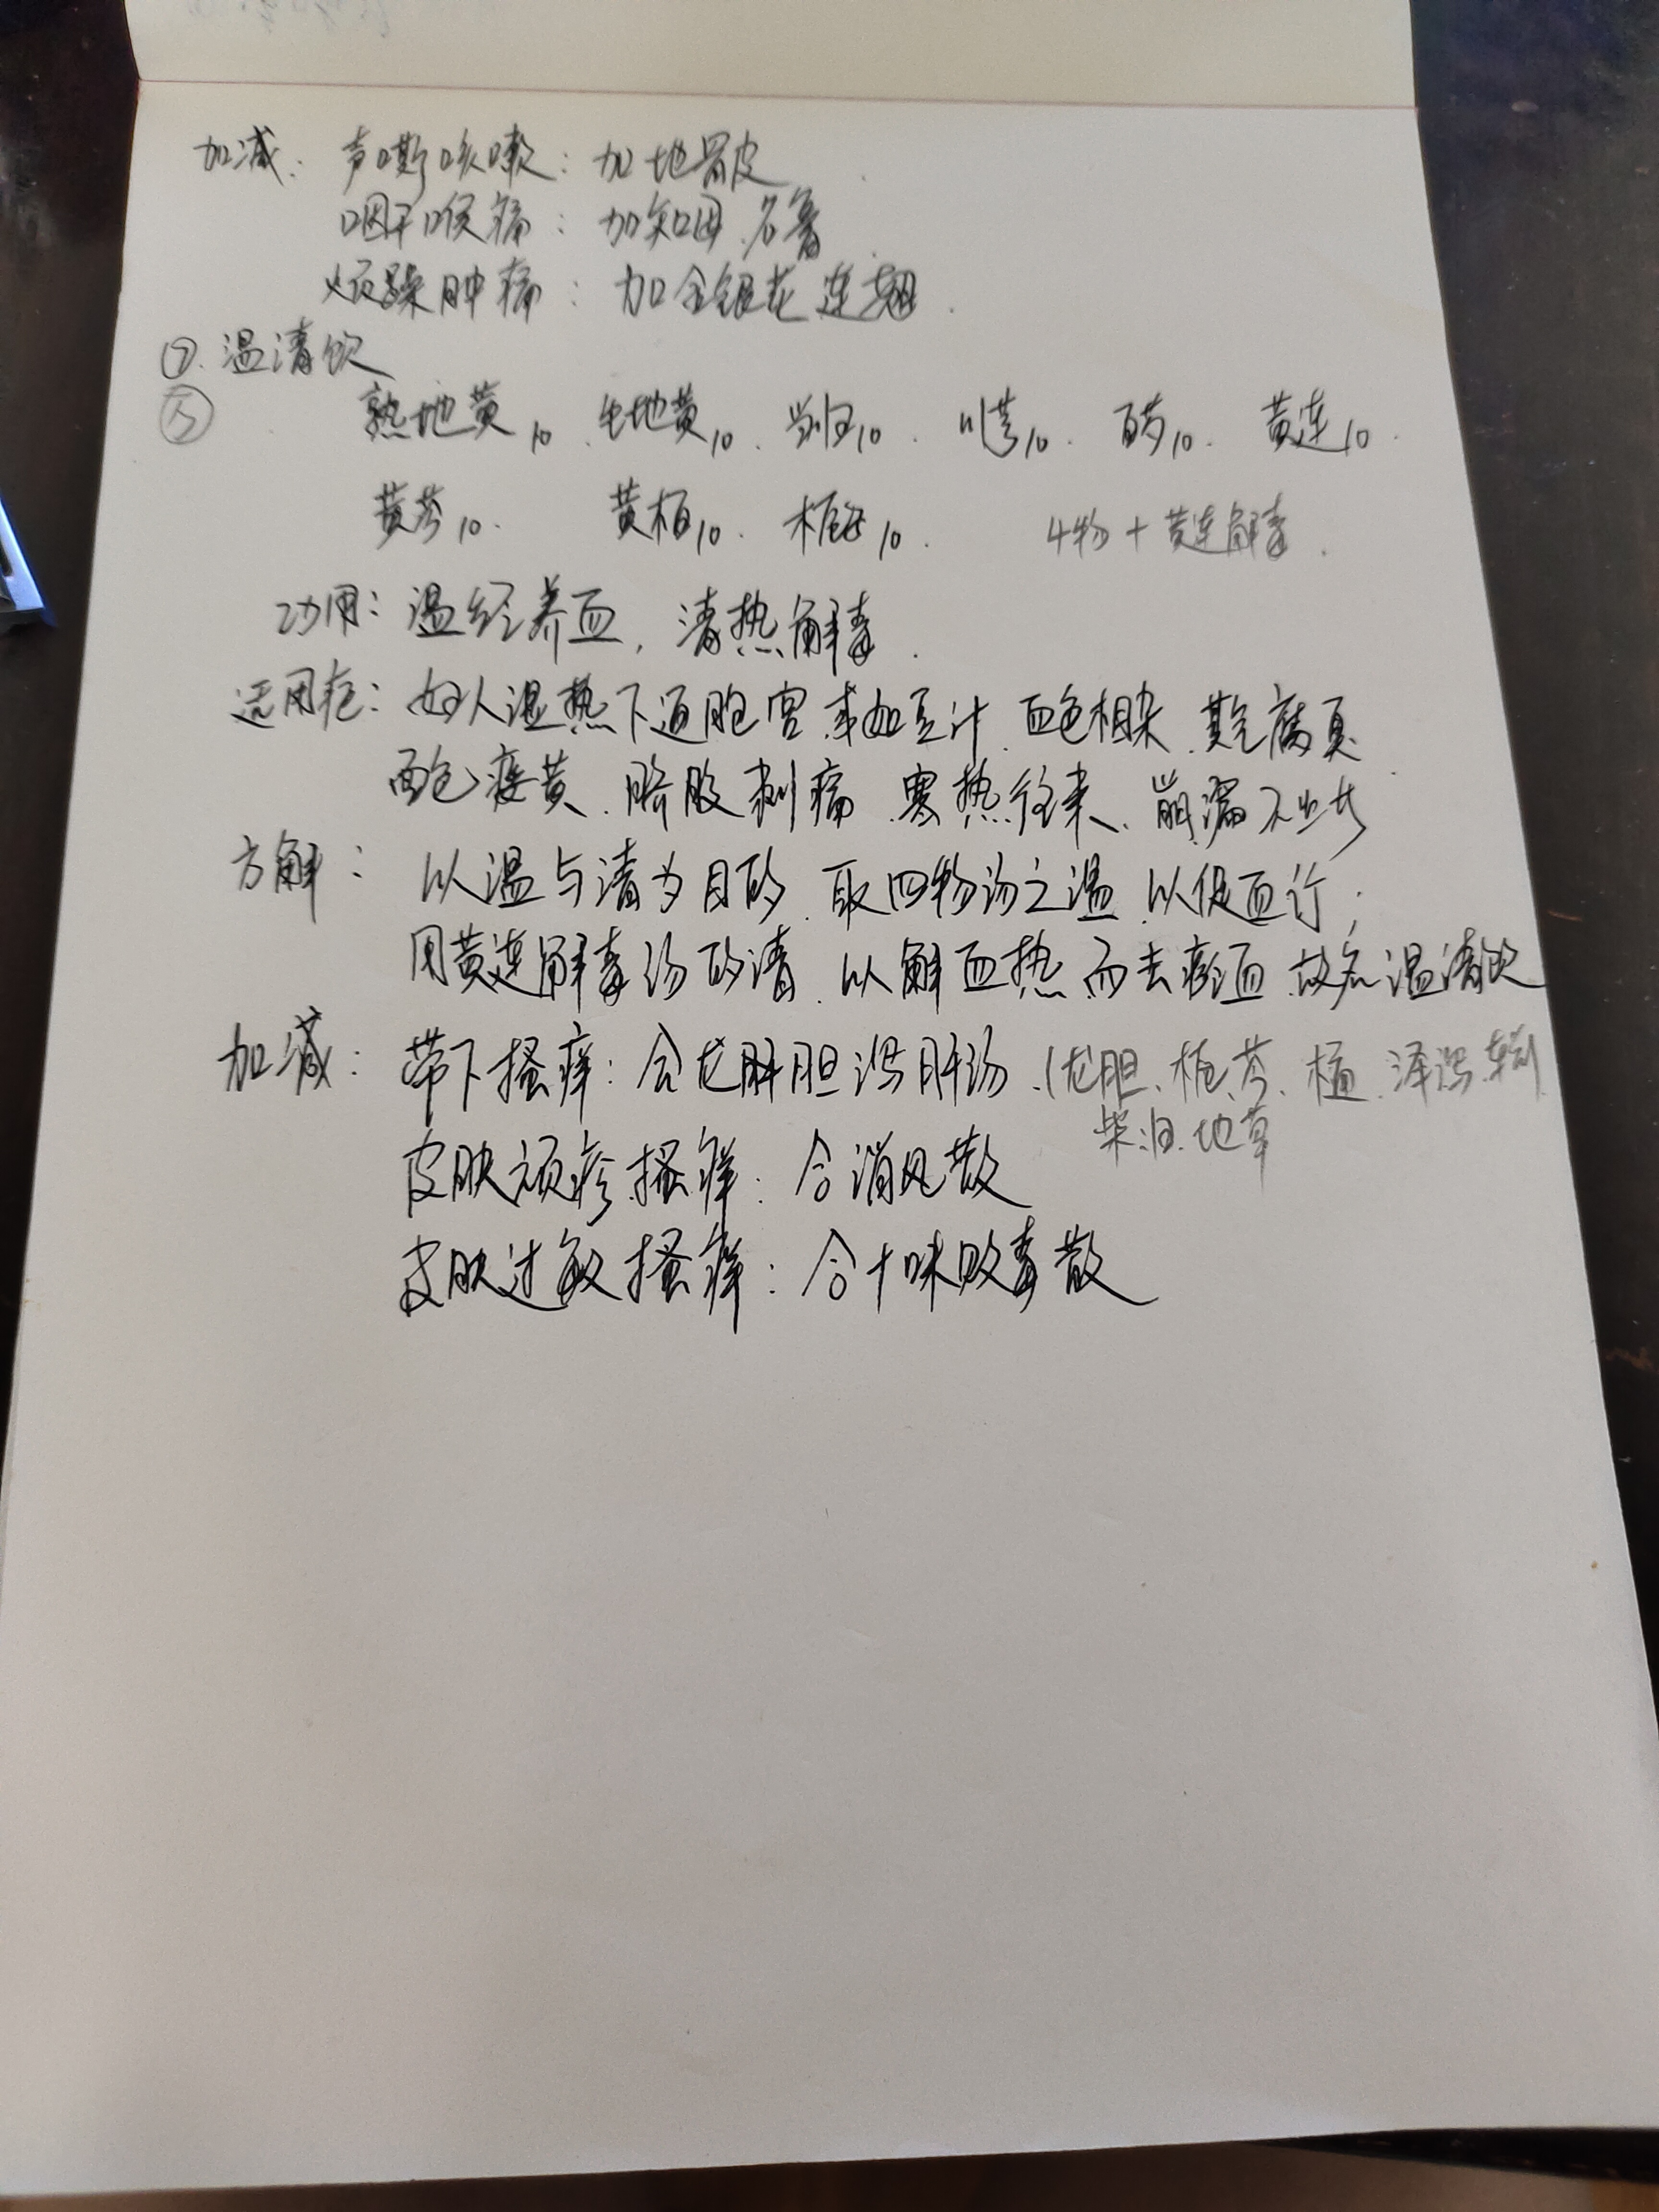 加减：声嘶咳嗽：加地骨皮
咽干喉痛：加知母、石膏
烦躁肿痛：加金银花 连翘.
⑦. 温清饮
熟地黄10、生地黄10、当归10. 川芎10. 白芍10. 黄连10.
黄芩10. 黄柏10. 栀子10. 4物+黄连解毒.
功用：温经养血，清热解毒.
适用症：妇人湿热下迫胞宫 或如豆汁 血色相杂 其气腐臭
面色痿黄、脐股刺痛 寒热往来、崩漏不止者
方解：以温与清为目的 取四物汤之温 以促血行；
用黄连解毒汤的清、以解血热而去瘀血 故名温清饮
加减：带下搔痒：合龙胆泻肝汤.(龙胆、栀、芩、 泽泻.
柴、归、地草
皮肤顽疹搔痒：合消风散
皮肤过敏搔痒：合十味败毒散